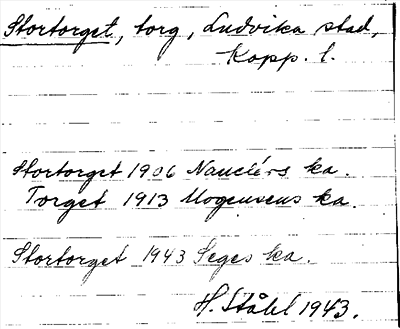 Stortorget, torg, Ludvika stad,
Kopp. l.
Stortorget 1906 Nauclérs ka.
Torget 1913 Mogensens ka.
Stortorget 1943 Seges ka.
H. Ståhl 1943.